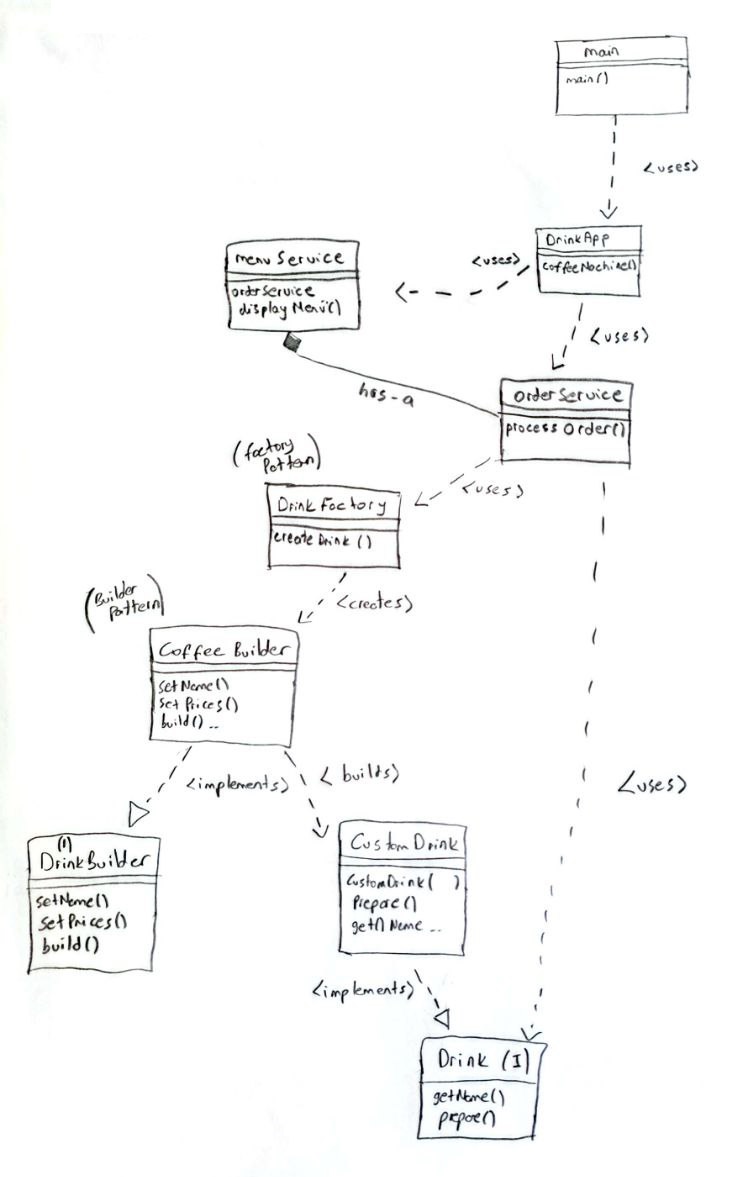 main
main()
<uses>
DrinkApp
coffeeMachine()
<uses>
<uses>
menuService
orderService
displayMenu()
has-a
orderService
processOrder()
<uses>
(factory
Pattern)
DrinkFactory
createDrink ()
<creates>
(Builder
Pattern)
Coffee Builder
setName()
set Prices()
build() ..
<implements>
< builds>
<uses>
(I)
DrinkBuilder
setName()
setPrices()
build()
CustomDrink
CustomDrink( )
Prepare()
get() Name ..
<implements>
Drink (I)
getName()
prepare()